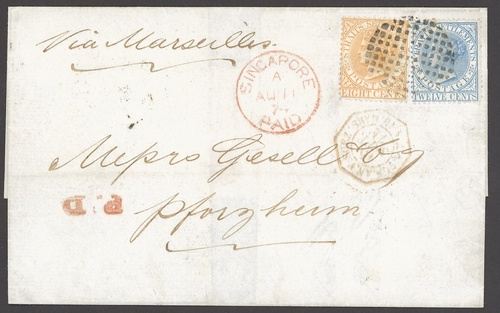 Via Marseilles
STRAITS SETTLEMENTS
POSTAGE
EIGHT CENTS
POSTAGE
TWELVE CENTS
SINGAPORE
A
AU 11
7
PAID
Messrs Gesell & Co
Pforzheim
P.D.